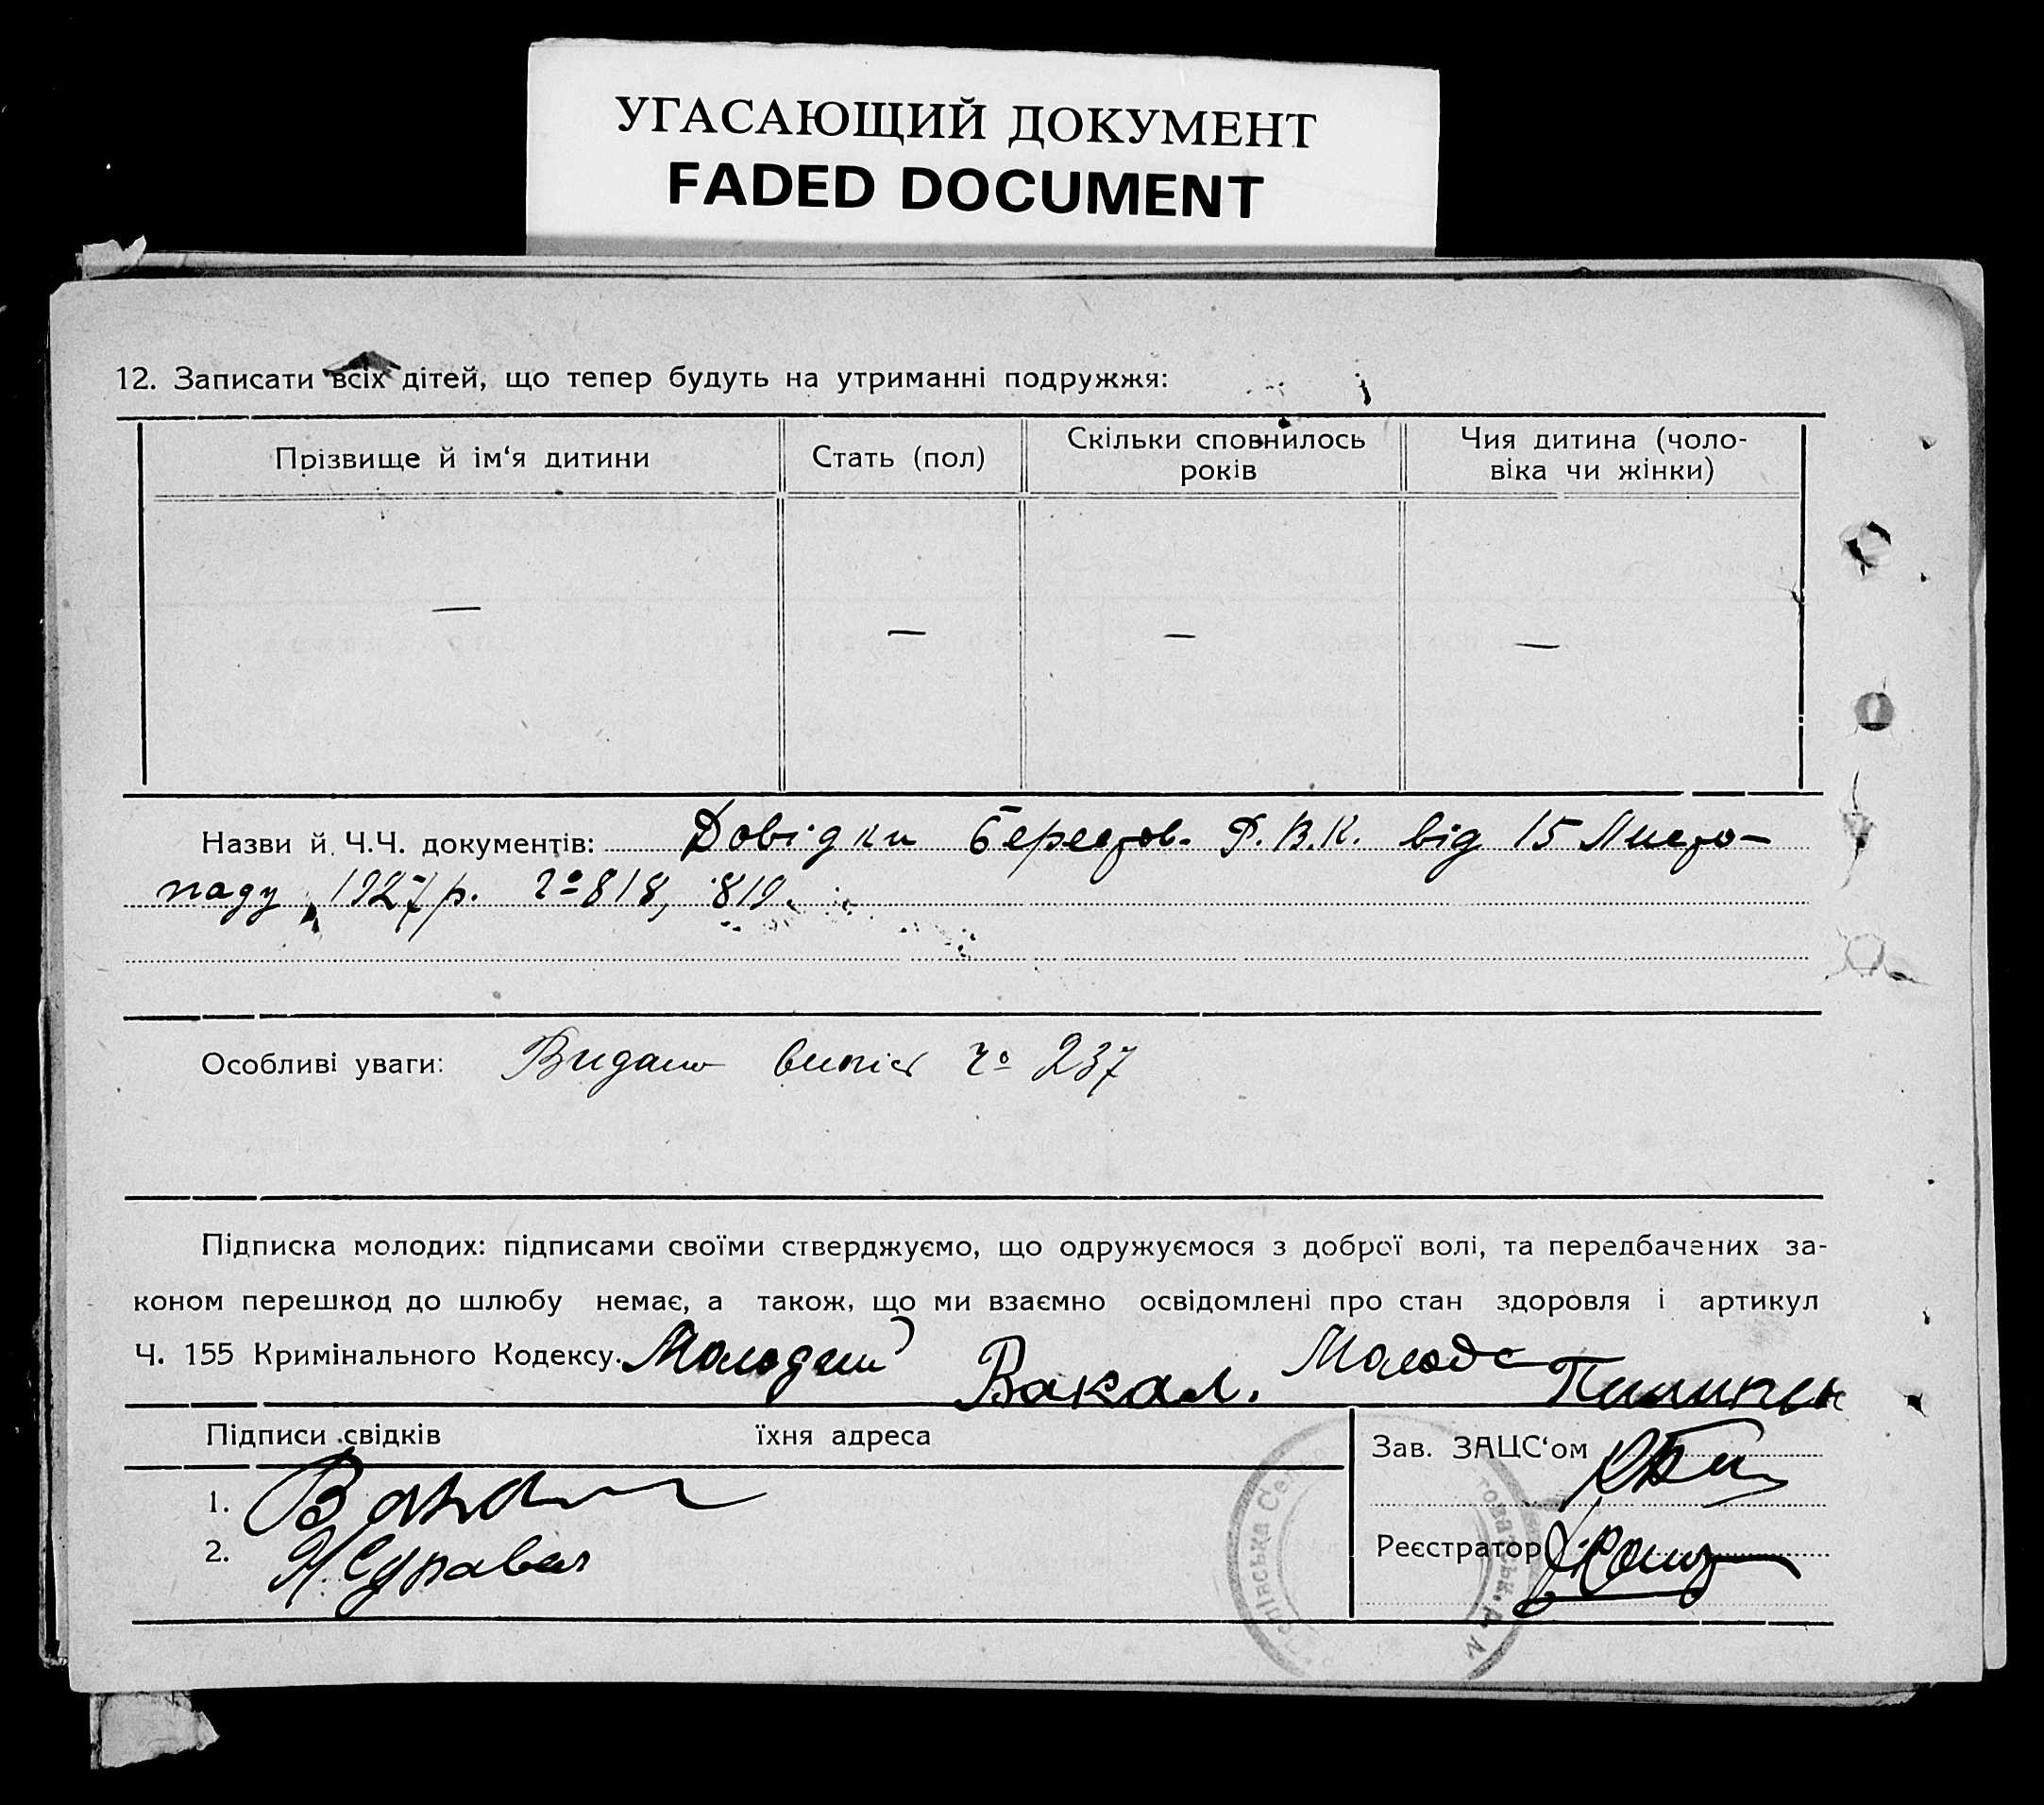 УГАСАЮЩИЙ ДОКУМЕНТ
FADED DOCUMENT
12. Записати всіх дітей, що тепер будуть на утриманні подружжя:
Прізвище й ім‘я дитини
Стать (пол)
Скільки сповнилось
років
Чия дитина (чоло-
віка чи жінки)
— — — —
Назви й Ч.Ч. документів: Довідки Берестов. Р.В.К. від 15 Листо-
паду 1927 р. Чо 818, 819.
Особливі уваги: Видано випис Чо 237
Підписка молодих: підписами своїми стверджуємо, що одружуємося з доброї волі, та передбачених за-
коном перешкод до шлюбу немає, а також, що ми взаємно освідомлені про стан здоровля і артикул
Ч. 155 Кримінального Кодексу. Молодий Вакал. Молода
Підписи свідків їхня адреса
Зав. ЗАЦС‘ом
1.
2.
Реєстратор